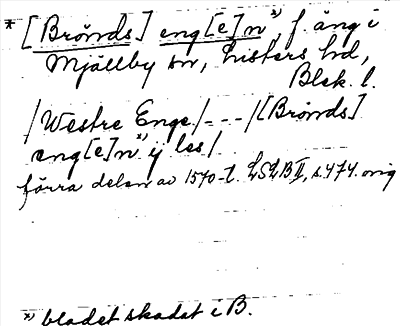 * [Brönds] eng[e]n*), f. äng i
Mjällby sn, Listers hd,
Blek. l.
/Westre Enge/ - - - /[Brönds]
eng[e]n*) ij les/
förra delen av 1570-t. LSLB II, s. 474. orig
*) bladet skadat i B.